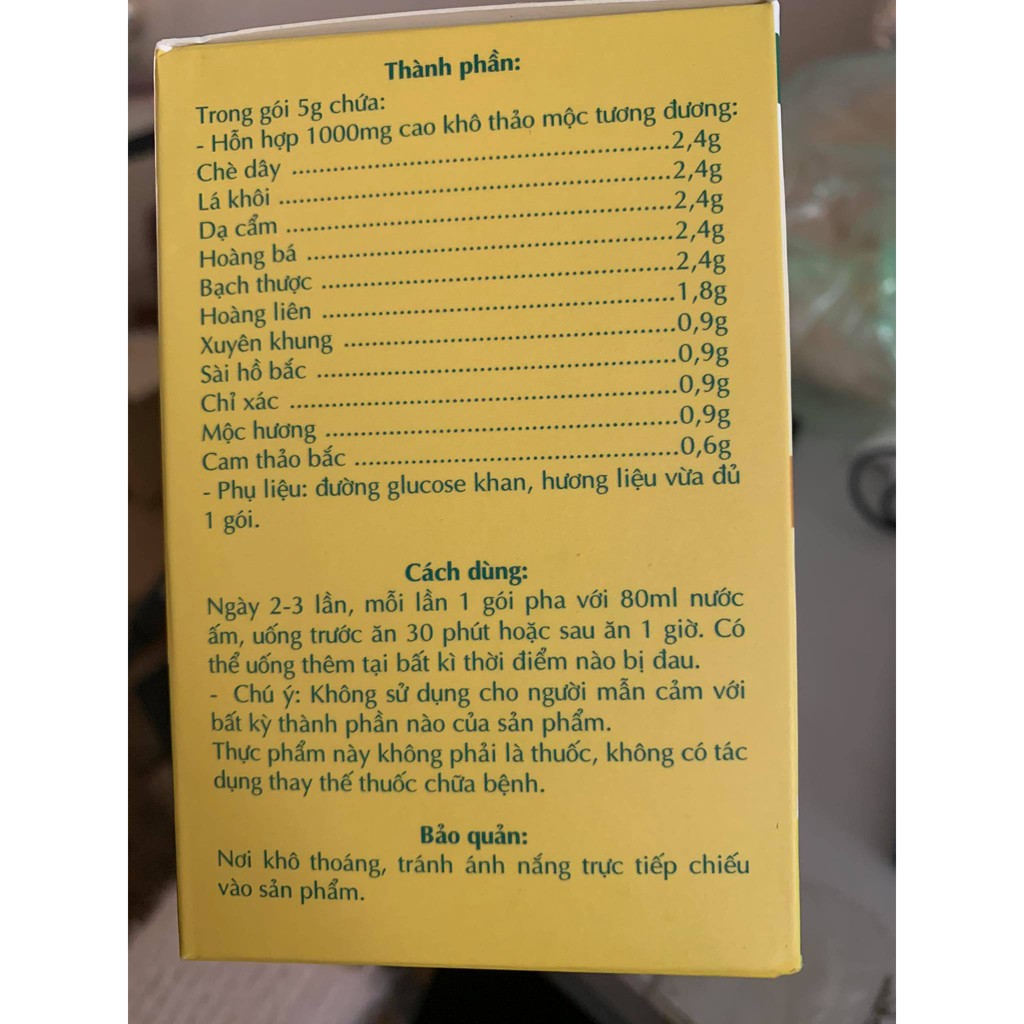 Thành phần:
Trong gói 5g chứa:
- Hỗn hợp 1000mg cao khô thảo mộc tương đương:
Chè dây ........................................................2,4g
Lá khôi ........................................................2,4g
Dạ cẩm ........................................................2,4g
Hoàng bá ........................................................2,4g
Bạch thược ........................................................2,4g
Hoàng liên ........................................................1,8g
Xuyên khung ........................................................0,9g
Sài hồ bắc ........................................................0,9g
Chỉ xác ........................................................0,9g
Mộc hương ........................................................0,9g
Cam thảo bắc ........................................................0,6g
- Phụ liệu: đường glucose khan, hương liệu vừa đủ
1 gói.
Cách dùng:
Ngày 2-3 lần, mỗi lần 1 gói pha với 80ml nước
ấm, uống trước ăn 30 phút hoặc sau ăn 1 giờ. Có
thể uống thêm tại bất kì thời điểm nào bị đau.
- Chú ý: Không sử dụng cho người mẫn cảm với
bất kỳ thành phần nào của sản phẩm.
Thực phẩm này không phải là thuốc, không có tác
dụng thay thế thuốc chữa bệnh.
Bảo quản:
Nơi khô thoáng, tránh ánh nắng trực tiếp chiếu
vào sản phẩm.